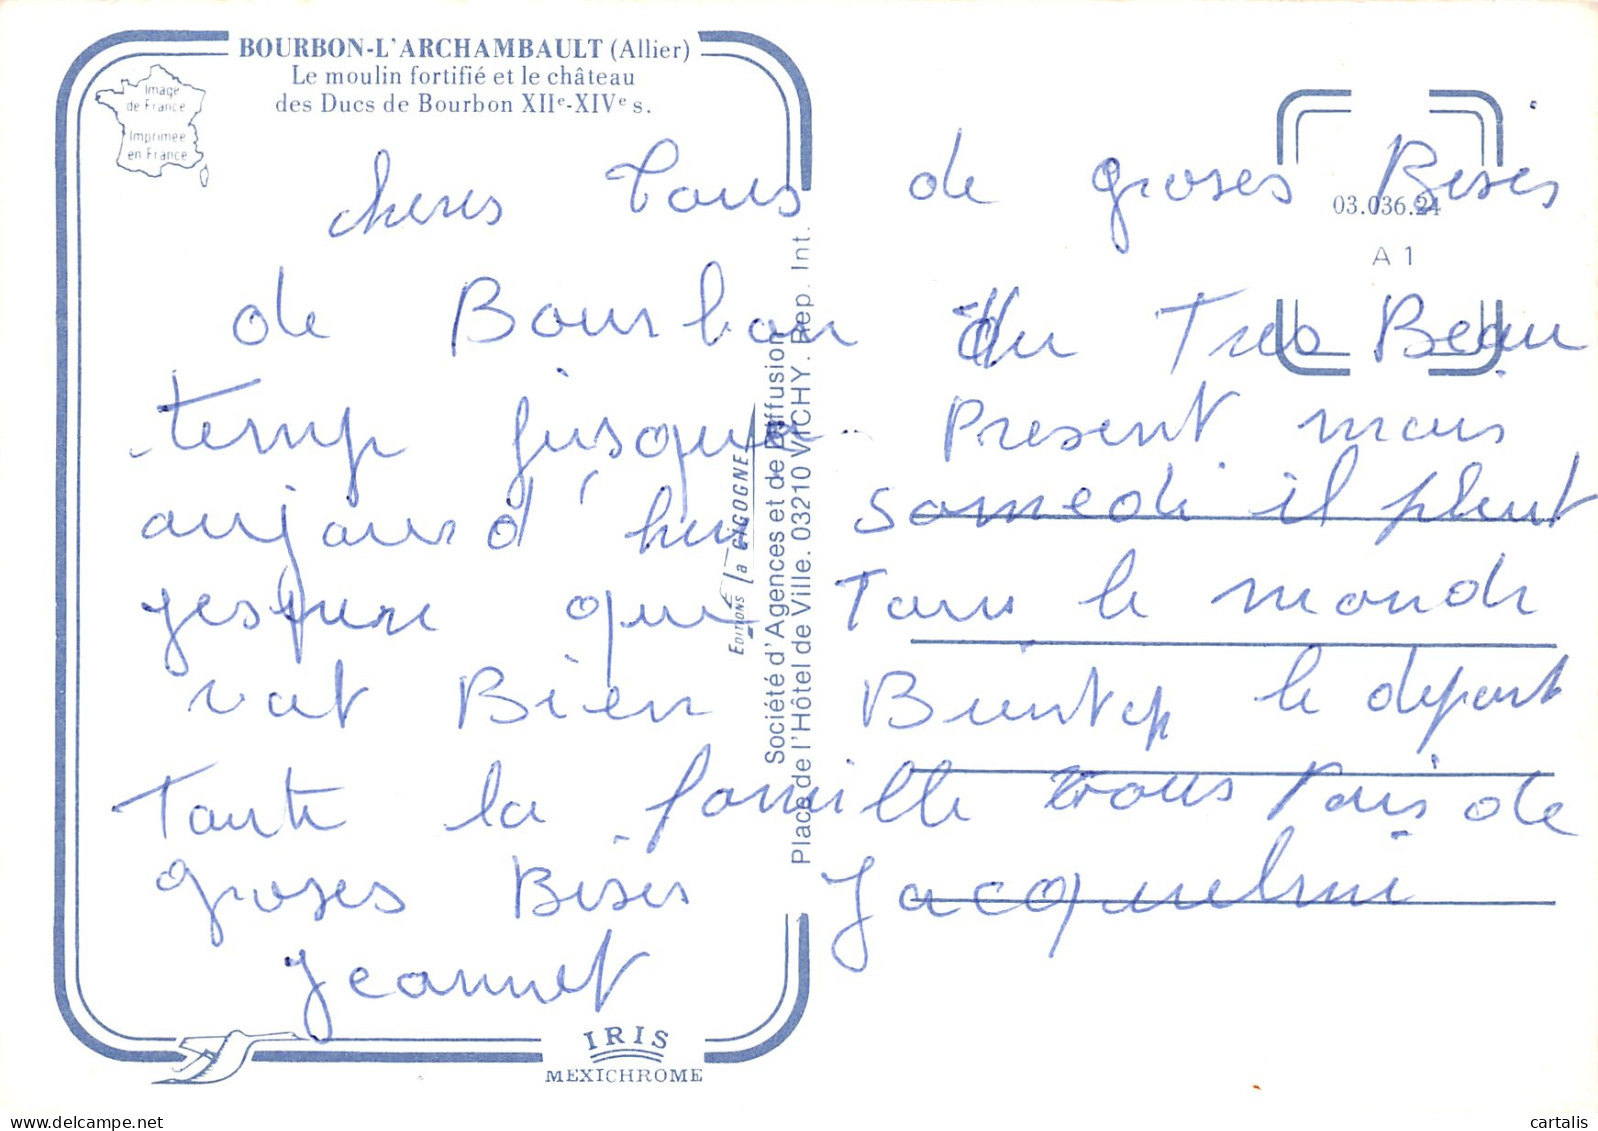 BOURBON-L'ARCHAMBAULT (Allier)
Le moulin fortifié et le château
des Ducs de Bourbon XIIe-XIVe s.
Image
de France
Imprimée
en France
03.036.24
A 1
cheres Tous de groses Bises
de Bourbon du Tres Beau
temp jusqua Present mais
aujourd'hui samedi il pleut
jespere que Tous le monde
vat Bien Bientop le depart
Toute la famille vous Fais de
groses Bises Jacqueline
Jeannet
Editions la CIGOGNE
Société d'Agences et de Diffusion
Place de l'Hôtel de Ville. 03210 VICHY. Rep. Int.
IRIS
MEXICHROME
cartalis